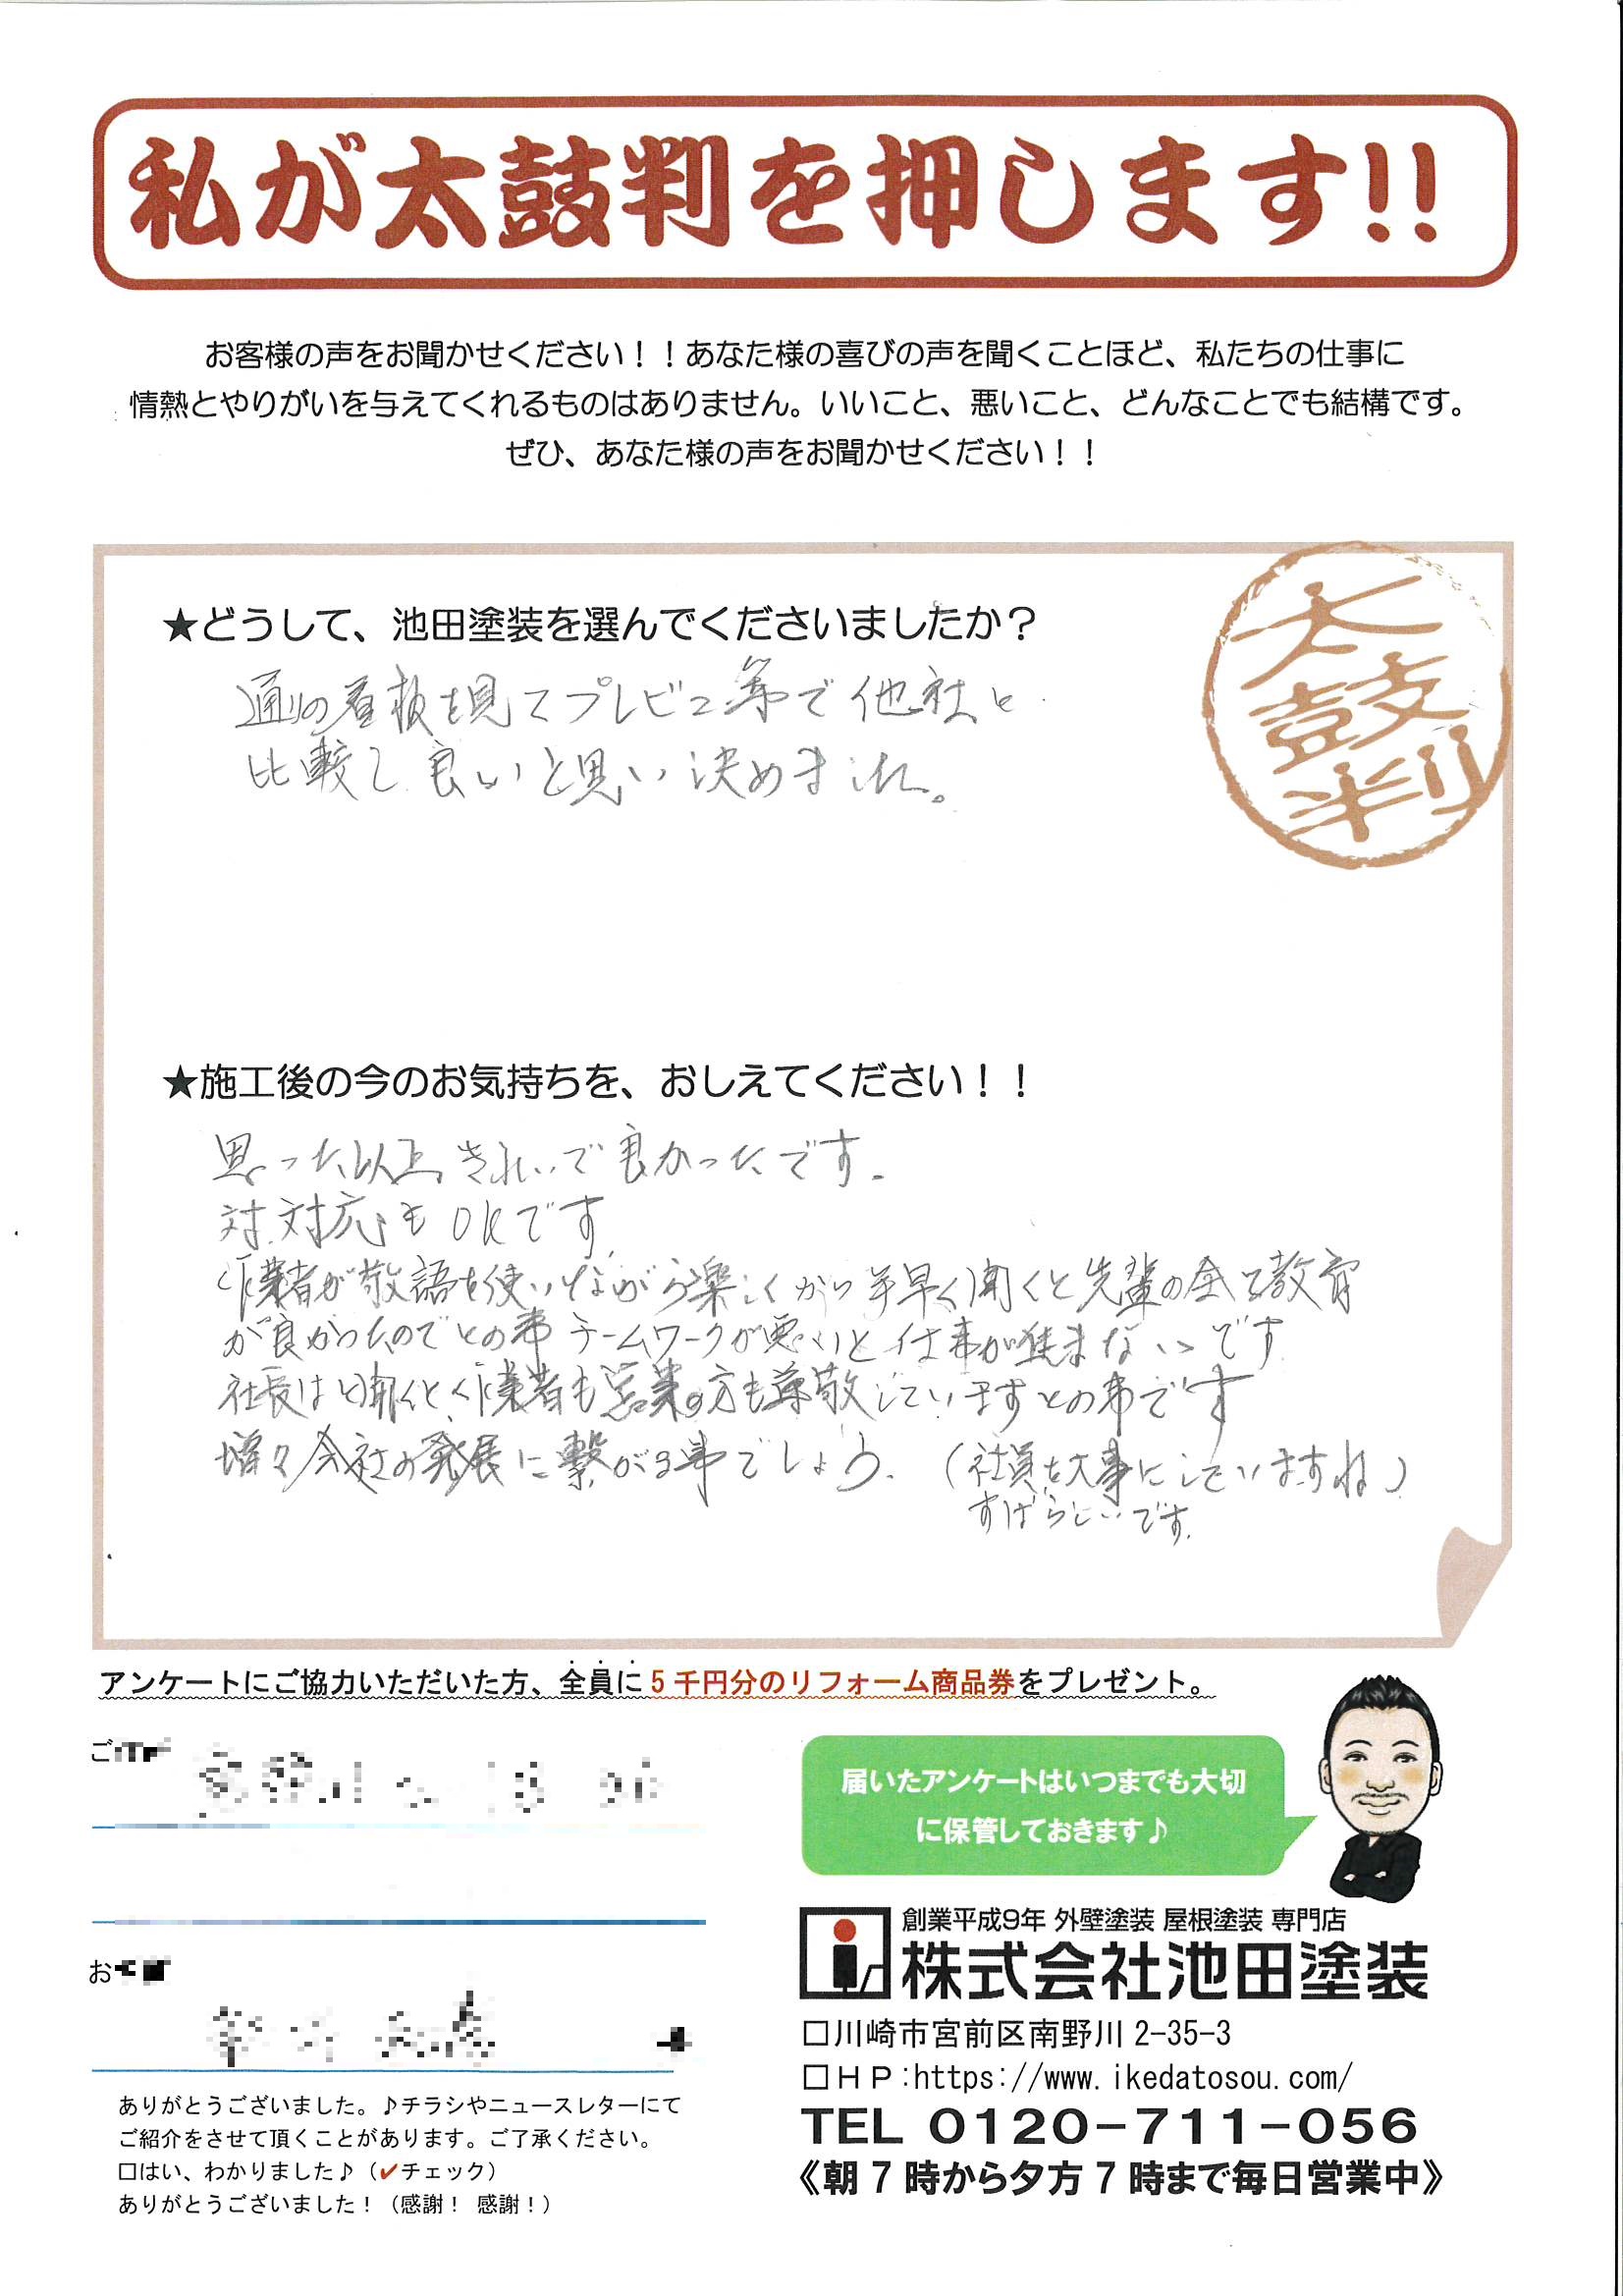 私が太鼓判を押します!!
お客様の声をお聞かせください！！あなた様の喜びの声を聞くことほど、私たちの仕事に
情熱とやりがいを与えてくれるものはありません。いいこと、悪いこと、どんなことでも結構です。
ぜひ、あなた様の声をお聞かせください！！
太鼓判
★どうして、池田塗装を選んでくださいましたか？
通りの看板を見てプレビュー等で他社と
比較し良いと思い決めました。
★施工後の今のお気持ちを、おしえてください！！
思った以上きれいで良かったです。
対対応もOKです
作業者が敬語を使いながら楽しくかつ手早く聞くと先輩の全て教育
が良かったのでとの事 チームワークが悪いと仕事が進まないです
社長はと聞くと作業者も営業の方も尊敬していますとの事です
増々会社の発展に繋がる事でしょう。（社員を大事にしていますね）
すばらしいです。
アンケートにご協力いただいた方、全員に5千円分のリフォーム商品券をプレゼント。
ご
届いたアンケートはいつまでも大切
に保管しておきます♪
お
創業平成9年 外壁塗装 屋根塗装 専門店
株式会社池田塗装
□川崎市宮前区南野川 2-35-3
□ＨＰ:https://www.ikedatosou.com/
TEL 0120-711-056
《朝7時から夕方7時まで毎日営業中》
ありがとうございました。♪チラシやニュースレターにて
ご紹介をさせて頂くことがあります。ご了承ください。
□はい、わかりました♪（✔チェック）
ありがとうございました！（感謝！ 感謝！）